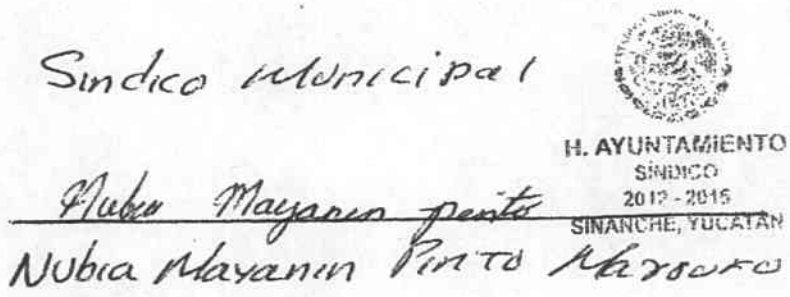 Sindico Municipal
H. AYUNTAMIENTO
SÍNDICO
2012 - 2015
SINANCHE, YUCATAN
Nubia Mayanin pinto
Nubia Mayanin Pinto